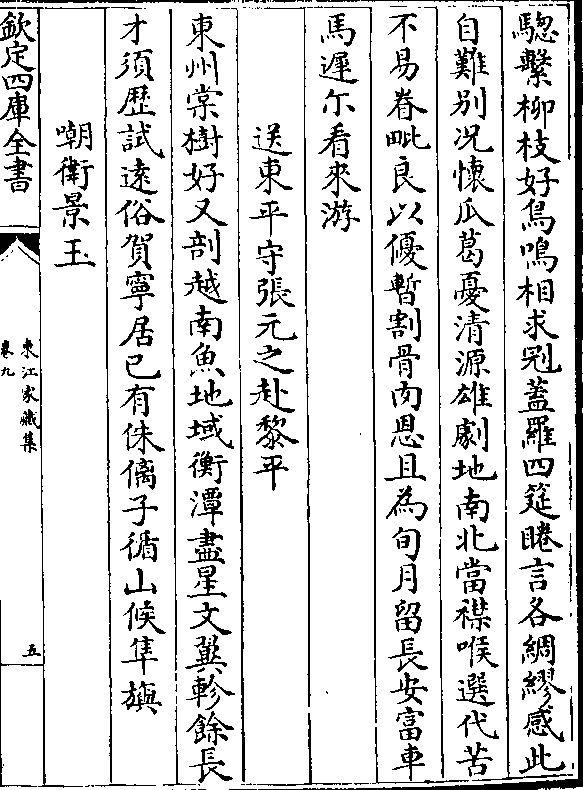 驄繫柳枝好鳥鳴相求冠蓋羅四筵睠言各綢繆感此
自難别况懐瓜葛憂清源雄劇地南北當襟喉選代苦
不易眷毗良以優暫割骨肉恩且為旬月留長安富車
馬遲尓看來游
送東平守張元之赴黎平
東州棠樹好又剖越南魚地域衡潭盡星文翼軫餘長
才須歴試遠俗賀寧居已有侏㒧子循山候隼旟
嘲衛景玉
欽定四庫全書
東江家藏集
卷九
五